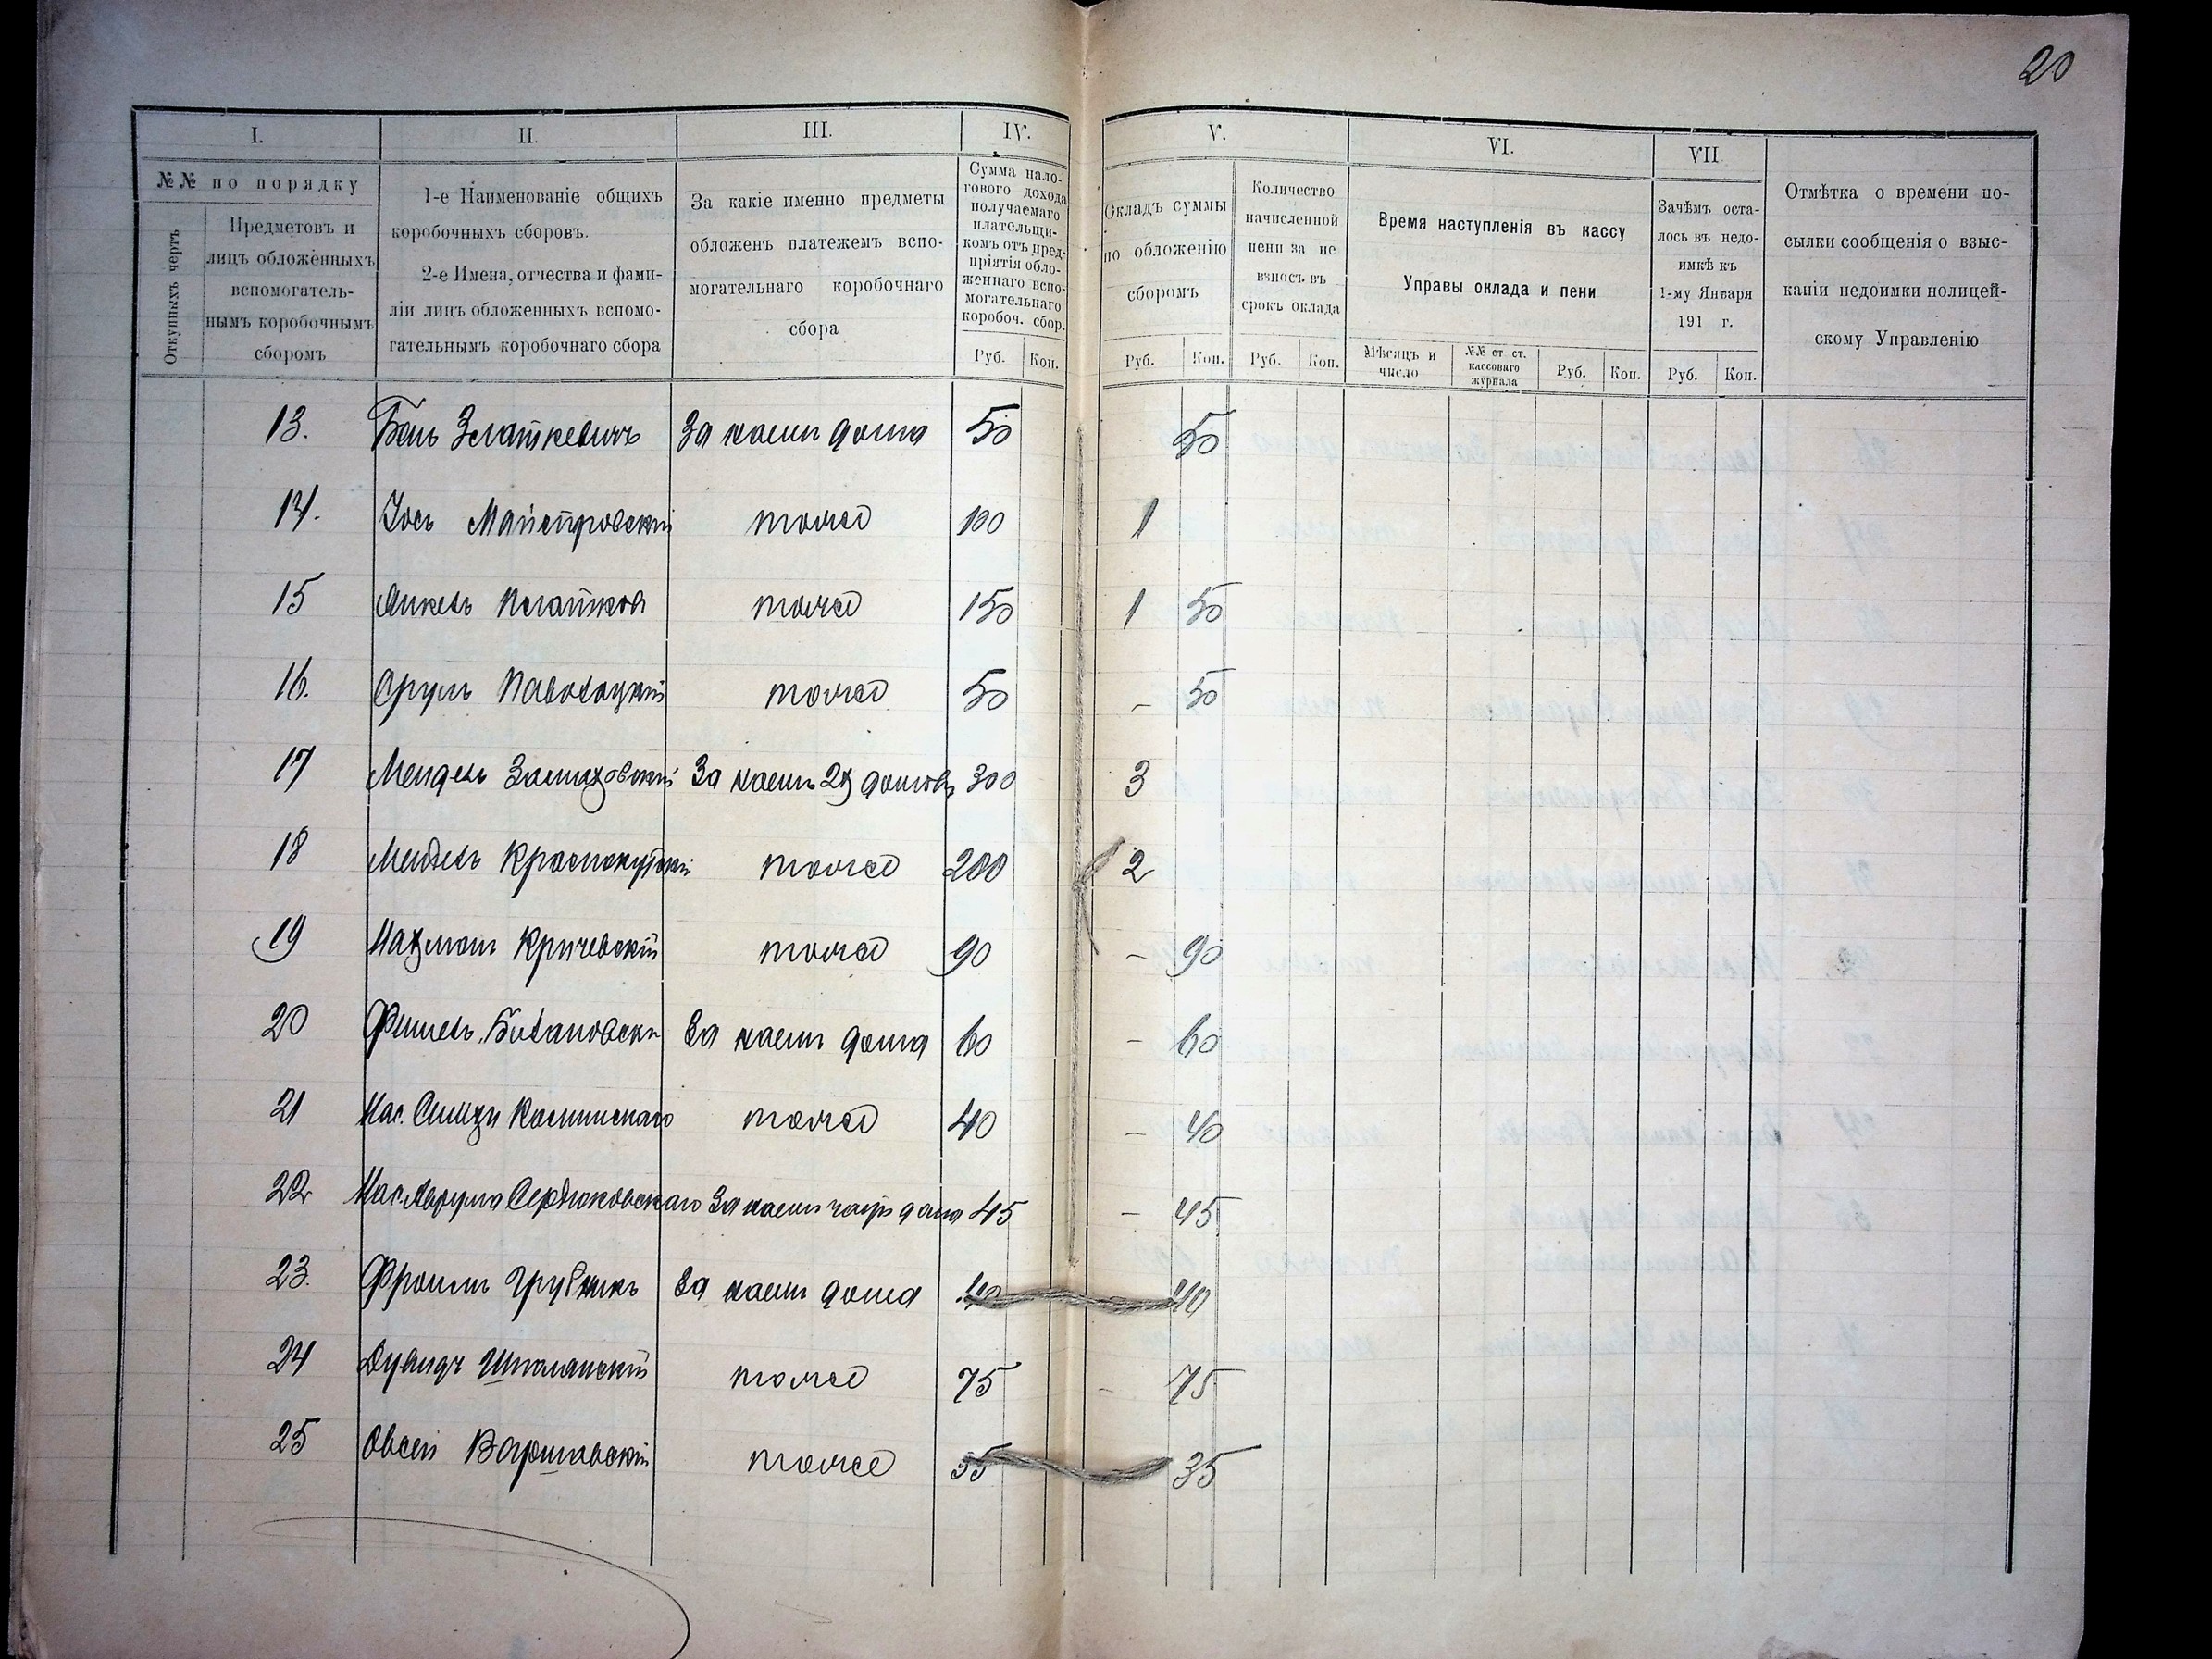 20
I. II. III. IV. V. VI. VII
№№ по порядку
Откупныхъ чертъ
Предметовъ и
лицъ обложенныхъ
вспомогатель-
нымъ коробочнымъ
сборомъ
1-е Наименованіе общихъ
коробочныхъ сборовъ.
2-е Имена, отчества и фами-
ліи лицъ обложенныхъ вспомо-
гательнымъ коробочнаго сбора
За какіе именно предметы
обложенъ платежемъ вспо-
могательнаго коробочнаго
сбора
Сумма нало-
гового дохода
получаемаго
плательщи-
комъ отъ пред-
пріятія обло-
женнаго вспо-
могательнаго
коробоч. сбор.
Руб. Коп.
Окладъ суммы
по обложенію
сборомъ
Руб. Коп.
Количество
начисленной
пени за не
взносъ въ
срокъ оклада
Руб. Коп.
Время наступленія въ кассу
Управы оклада и пени
Мѣсяцъ и
число
№№ ст ст.
кассоваго
журнала
Руб. Коп.
Зачѣмъ оста-
лось въ недо-
имкѣ къ
1-му Января
191 г.
Руб. Коп.
Отмѣтка о времени по-
сылки сообщенія о взыс-
каніи недоимки полицей-
скому Управленію
13. Бень Златкевичъ За наемъ дома 50 50
14. Іось Майстровскій тоже 100 1
15 Янкель тоже 150 1 50
16. Сруль Паволоцкій тоже 50 - 50
17 Мендель За наемъ 2х домовъ 300 3
18 Мендель Краснокутскій тоже 200 2
19 Нахманъ Кричевскій тоже 90 - 90
20 Фишель За наемъ дома 60 - 60
21 Нас. тоже 40 - 40
22 Нас. Сердюковскаго За наемъ части дома 45 - 45
23. Фроимъ За наемъ дома 40 40
24 Дувидъ Шполянскій тоже 75 - 75
25 Овсей Варшавскій тоже 35 35